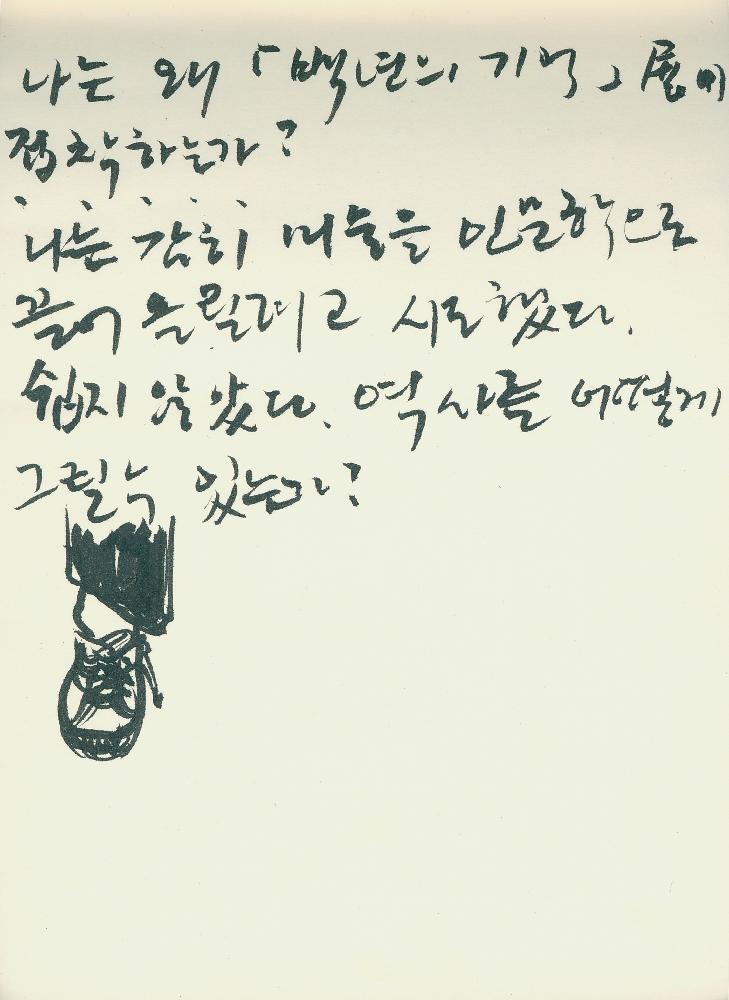 나는 왜 「백년의 기억」展에
접착하는가?
나는 감히 미술을 인문학으로
끌어 올릴려고 시도했다.
쉽지 않았다. 역사를 어떻게
그릴 수 있는가?